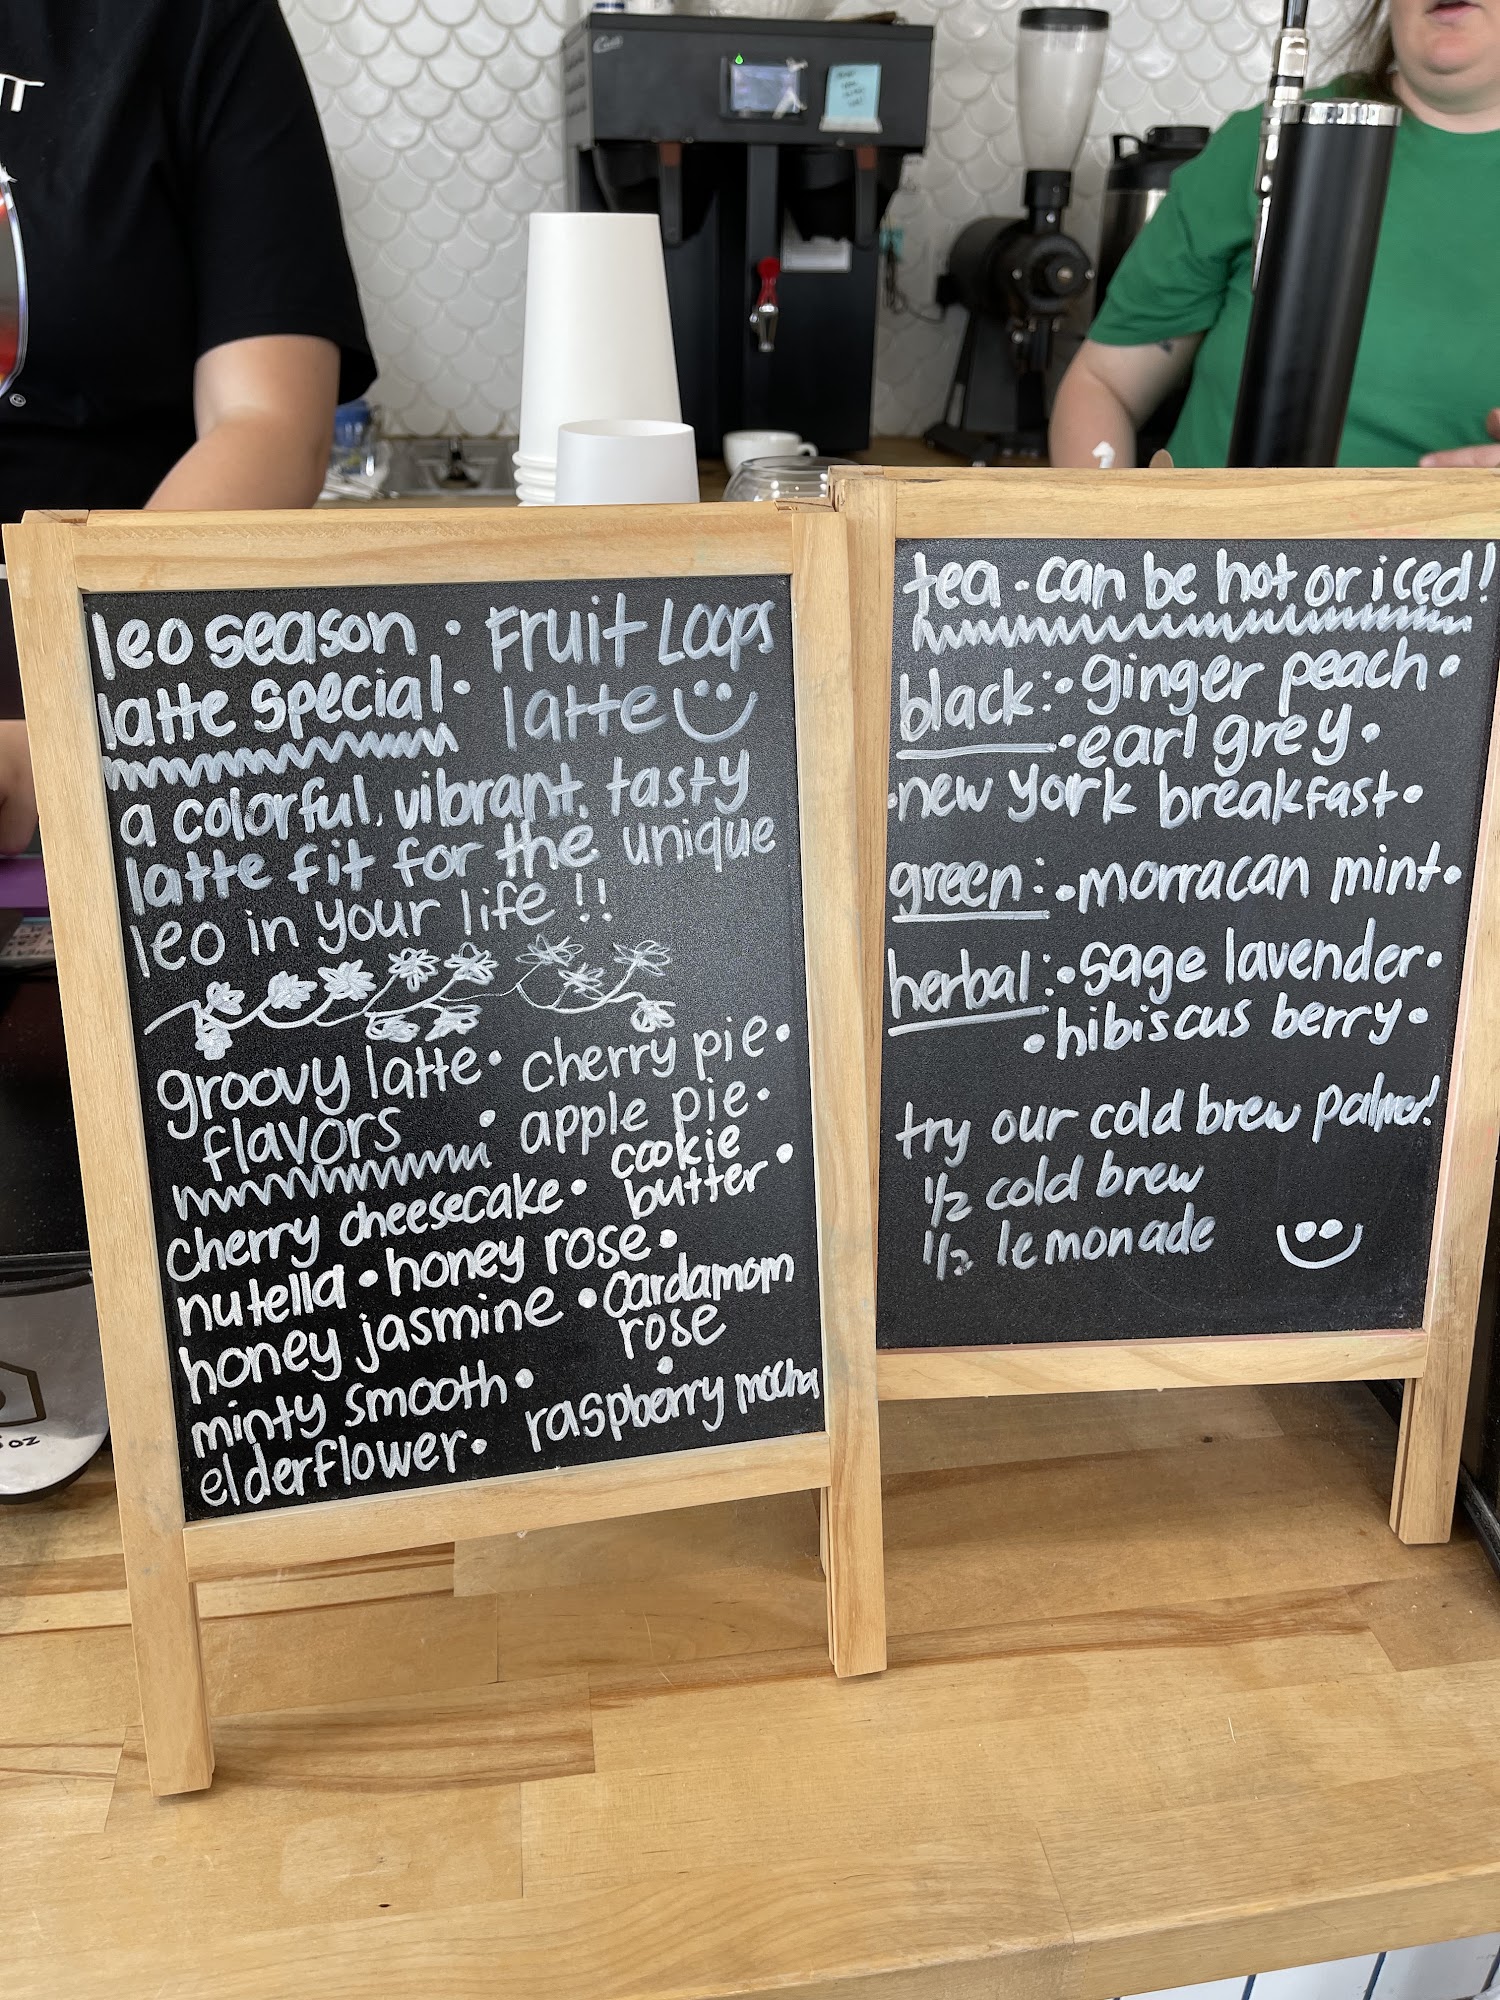 leo season · Fruit Loops
latte special · latte
a colorful, vibrant, tasty
latte fit for the unique
leo in your life !!
groovy latte • cherry pie •
flavors • apple pie •
cherry cheesecake • cookie butter •
nutella • honey rose •
honey jasmine • cardamom rose
minty smooth •
elderflower • raspberry mocha
tea - can be hot or iced!
black: • ginger peach •
• earl grey •
• new york breakfast •
green: • morracan mint •
herbal: • sage lavender •
• hibiscus berry •
try our cold brew palmer!
1/2 cold brew
1/2 lemonade
oz